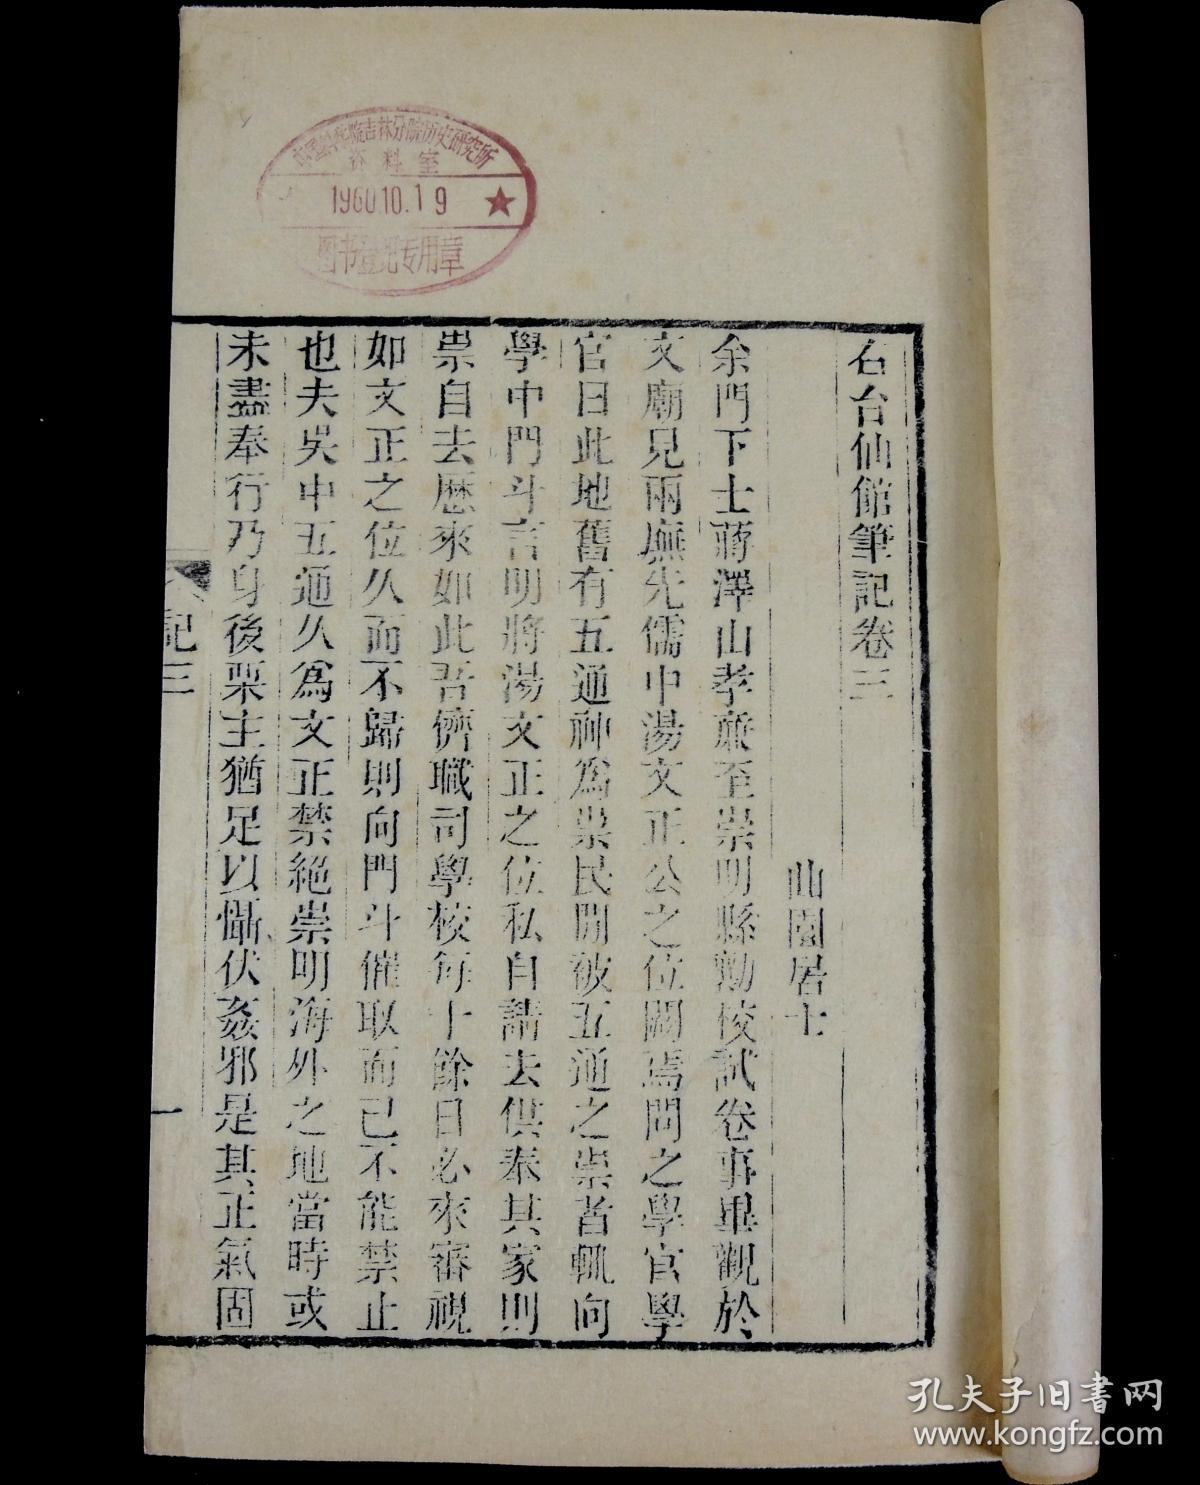 右台仙館筆記卷三
曲園居士
余門下士蔣澤山孝廉至崇明縣勷校試卷事畢觀於
文廟見兩廡先儒中湯文正公之位闕焉問之學官學
官曰此地舊有五通神爲祟民閒被五通之祟者輒向
學中門斗言明將湯文正之位私自請去供奉其家則
祟自去歷來如此吾儕職司學校每十餘日必來審視
如文正之位久而不歸則向門斗催取而已不能禁止
也夫吳中五通久爲文正禁絕崇明海外之地當時或
未盡奉行乃身後栗主猶足以懾伏姦邪是其正氣固
記三
一
中国科学院吉林分院历史研究所
资料室
1960.10.19
图书登记专用章
孔夫子旧书网
www.kongfz.com